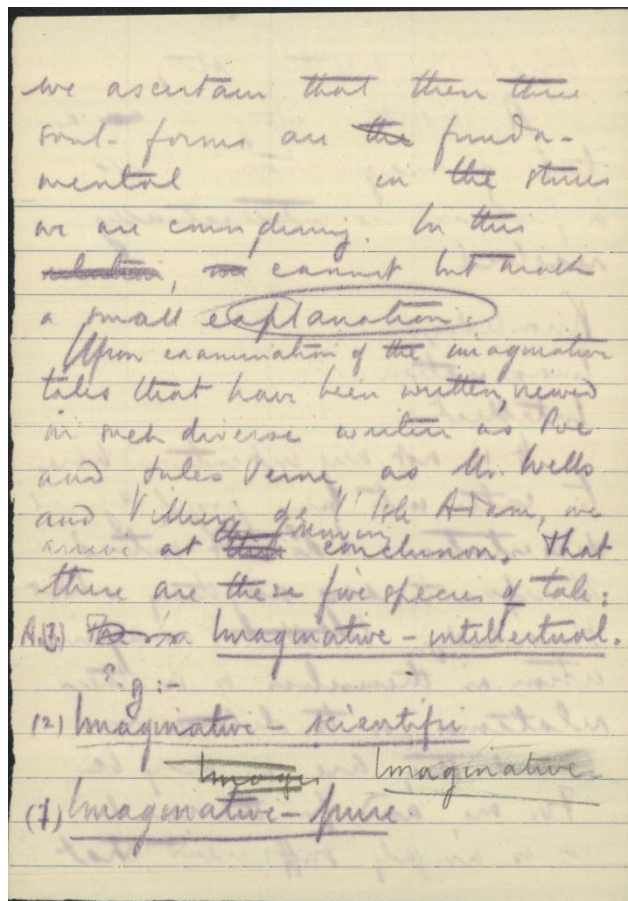 we ascertain that these three
soul-forms are the funda-
mental in the stories
we are considering. In this
relation, we cannot but make
a small explanation.
Upon examination of the imaginative
tales that have been written, viewed
in such diverse writers as Poe
and Jules Verne, as Mr. Wells
and Villiers de l'Isle Adam, we
arrive at the conclusion, that
there are these five species of tale:
Imaginative-intellectual.
e.g:-
(2) Imaginative-scientific
Image Imaginative
(1) Imaginative-pure